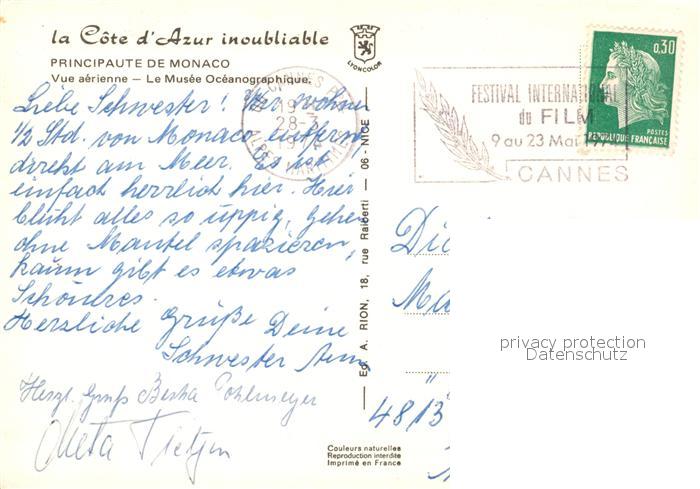 la Côte d'Azur inoubliable
PRINCIPAUTE DE MONACO
Vue aérienne — Le Musée Océanographique.
LYONCOLOR
Liebe Schwester! Wir wohnen
½ Std. von Monaco entfernt,
direkt am Meer. Es ist
einfach herrlich hier. Hier
blüht alles so üppig, gehen
ohne Mantel spazieren,
kaum gibt es etwas
Schöneres.
Herzliche Grüße Deine
Schwester Anny
Herzl. Gruß Berta Pohlmeyer
Meta Tietjen
Couleurs naturelles
Reproduction interdite
Imprimé en France
Ed. A. RION, 18, rue Raiberti — 06 - NICE
CANNES
19
28-3
ALPES MARITIMES
FESTIVAL INTERNATIONAL
du FILM
9 au 23 Mai
CANNES
0,30
POSTES
REPUBLIQUE FRANÇAISE
privacy protection
Datenschutz
4813